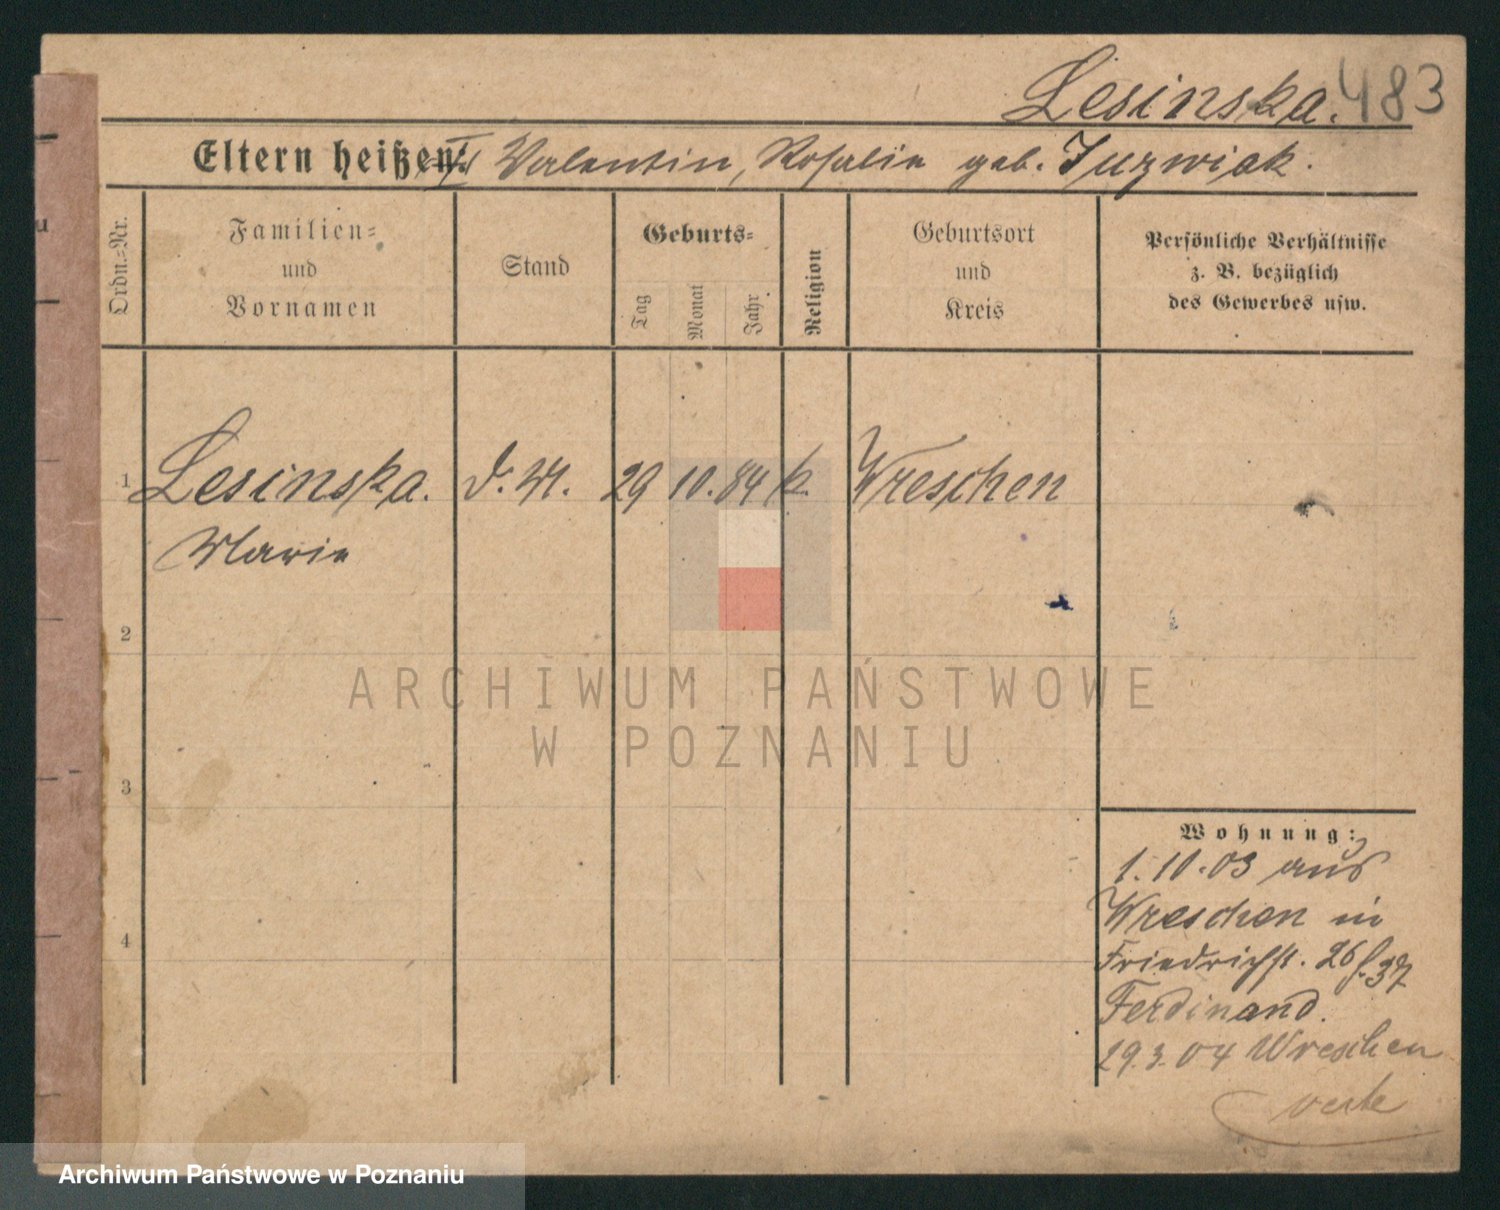 Lesinska. 483
Eltern heißen: Valentin, Rosalie geb. Juzwiak.
Ordn.-Nr.
Familien-
und
Vornamen
Stand
Geburts-
Tag
Monat
Jahr
Religion
Geburtsort
und
Kreis
Persönliche Verhältnisse
z. B. bezüglich
des Gewerbes usw.
1 Lesinska. d. M. 29 10. 84 k. Wreschen
Marie
2
3
4
Wohnung:
1. 10. 03 aus
Wreschen in
Friedrichst. 26 f. 37
Ferdinand.
29. 3. 04 Wreschen
ARCHIWUM PAŃSTWOWE
W POZNANIU
Archiwum Państwowe w Poznaniu